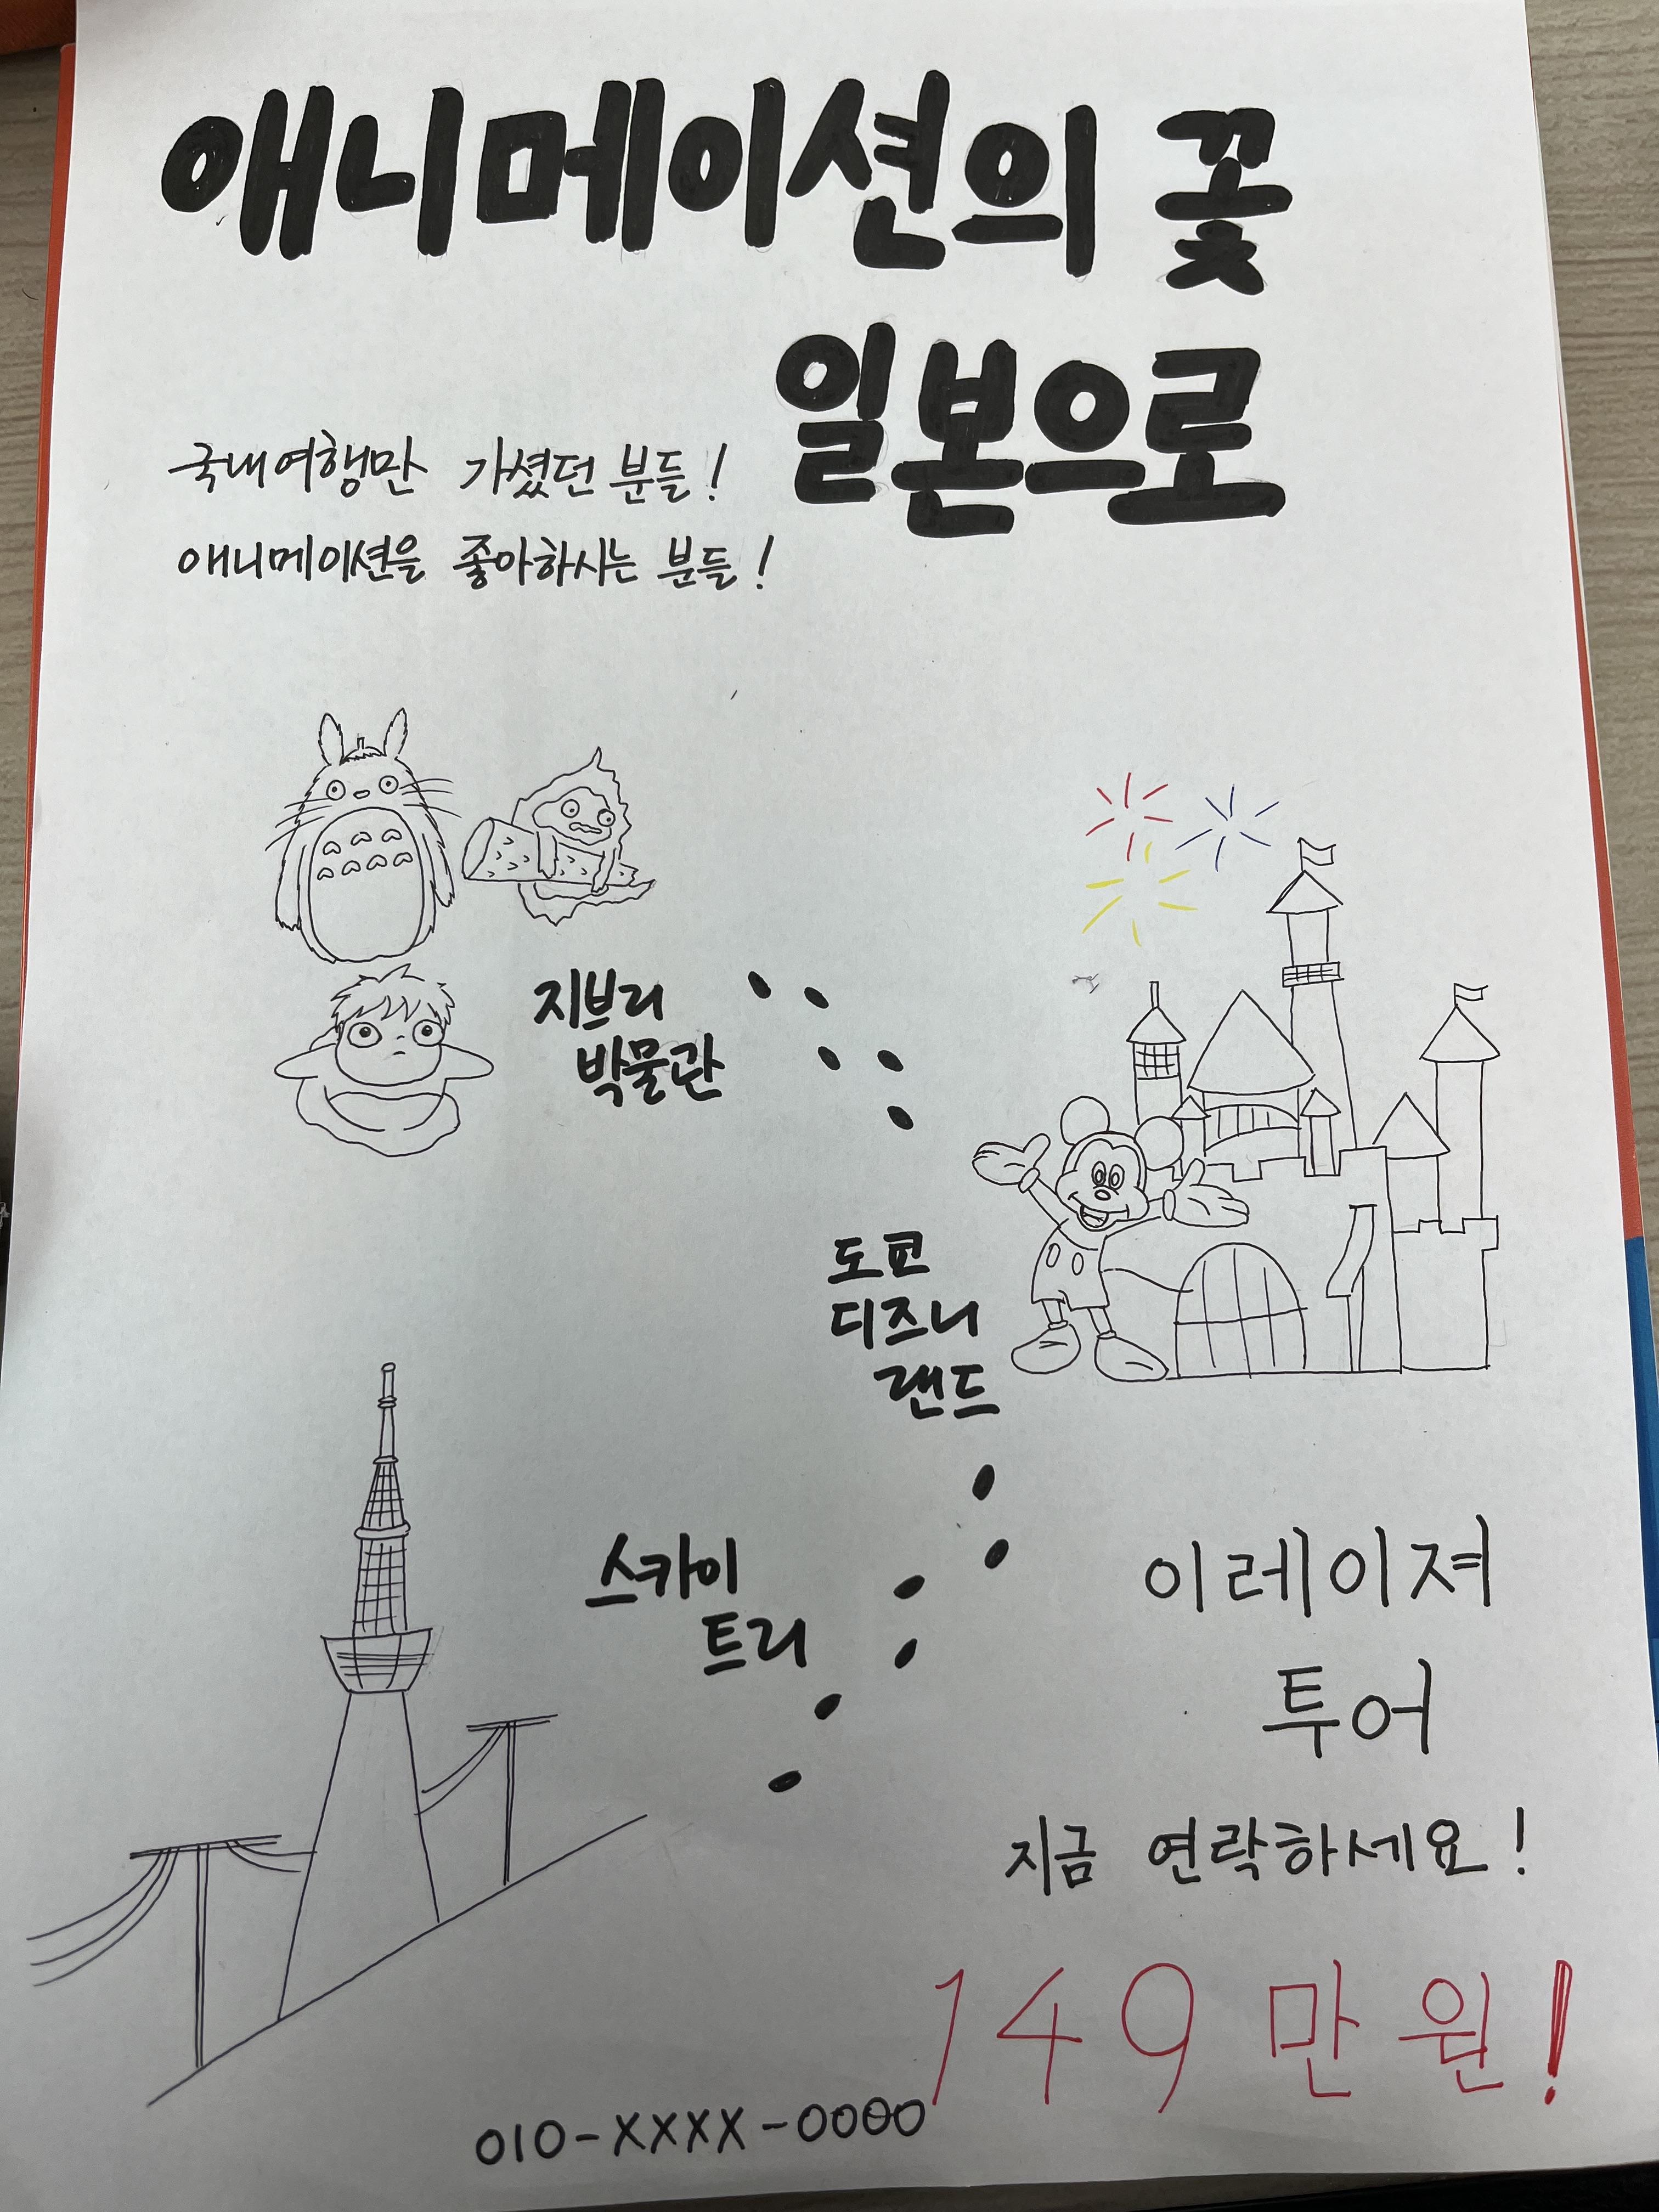 애니메이션의 꽃
일본으로
국내여행만 가셨던 분들!
애니메이션을 좋아하시는 분들!
지브리
박물관
도쿄
디즈니
랜드
스카이
트리
이레이져
투어
지금 연락하세요!
149만원!
010-XXXX-0000